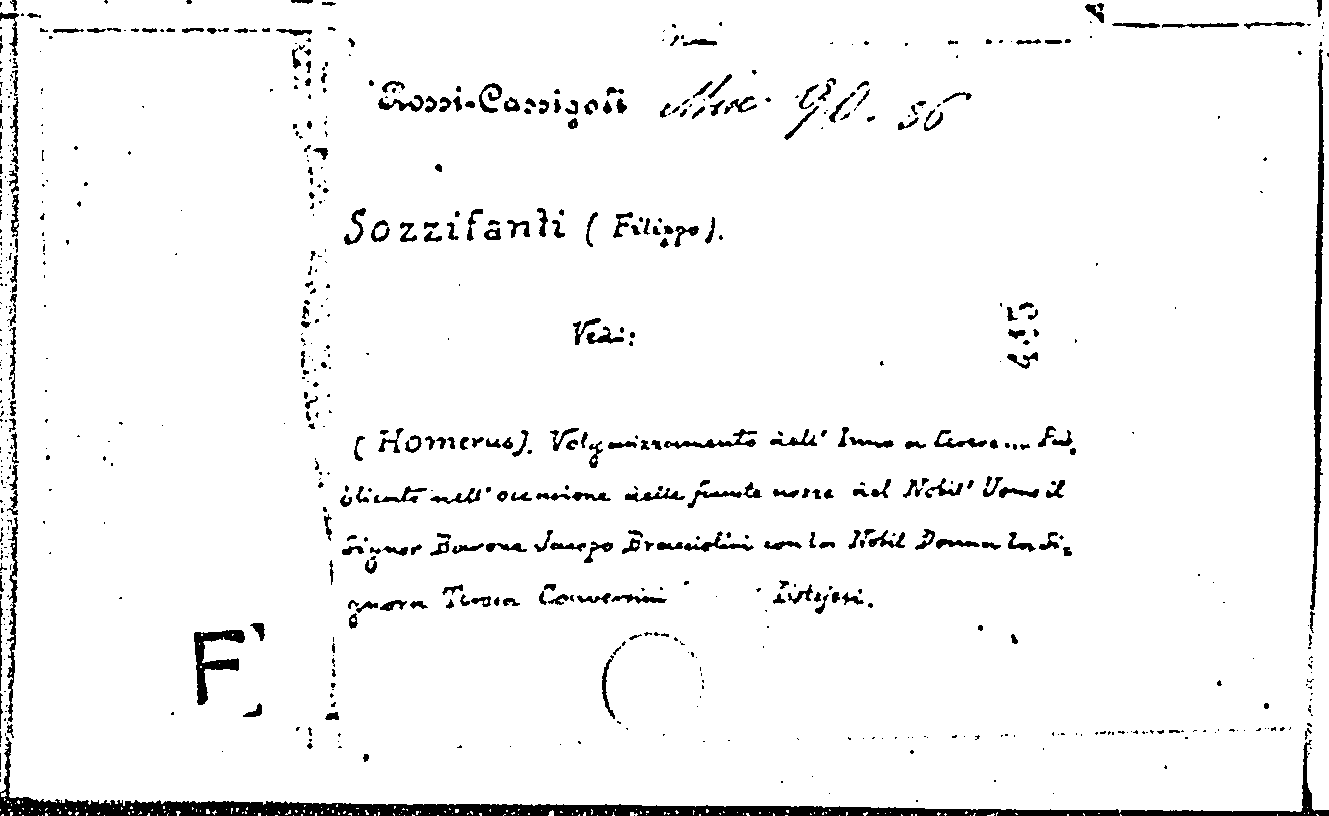 Rossi-Cassigoli Misc 90. 56
Sozzifanti ( Filippo).
Vedi:
455
( Homerus). Volgarizzamento dell' Inno a Cerere... Pub,
blicato nell' occasione delle fauste nozze del Nobil' Uomo il
Signor Barone Jacopo Bracciolini con la Nobil Donna la Si,
gnora Teresa Conversini Pistojesi.
F